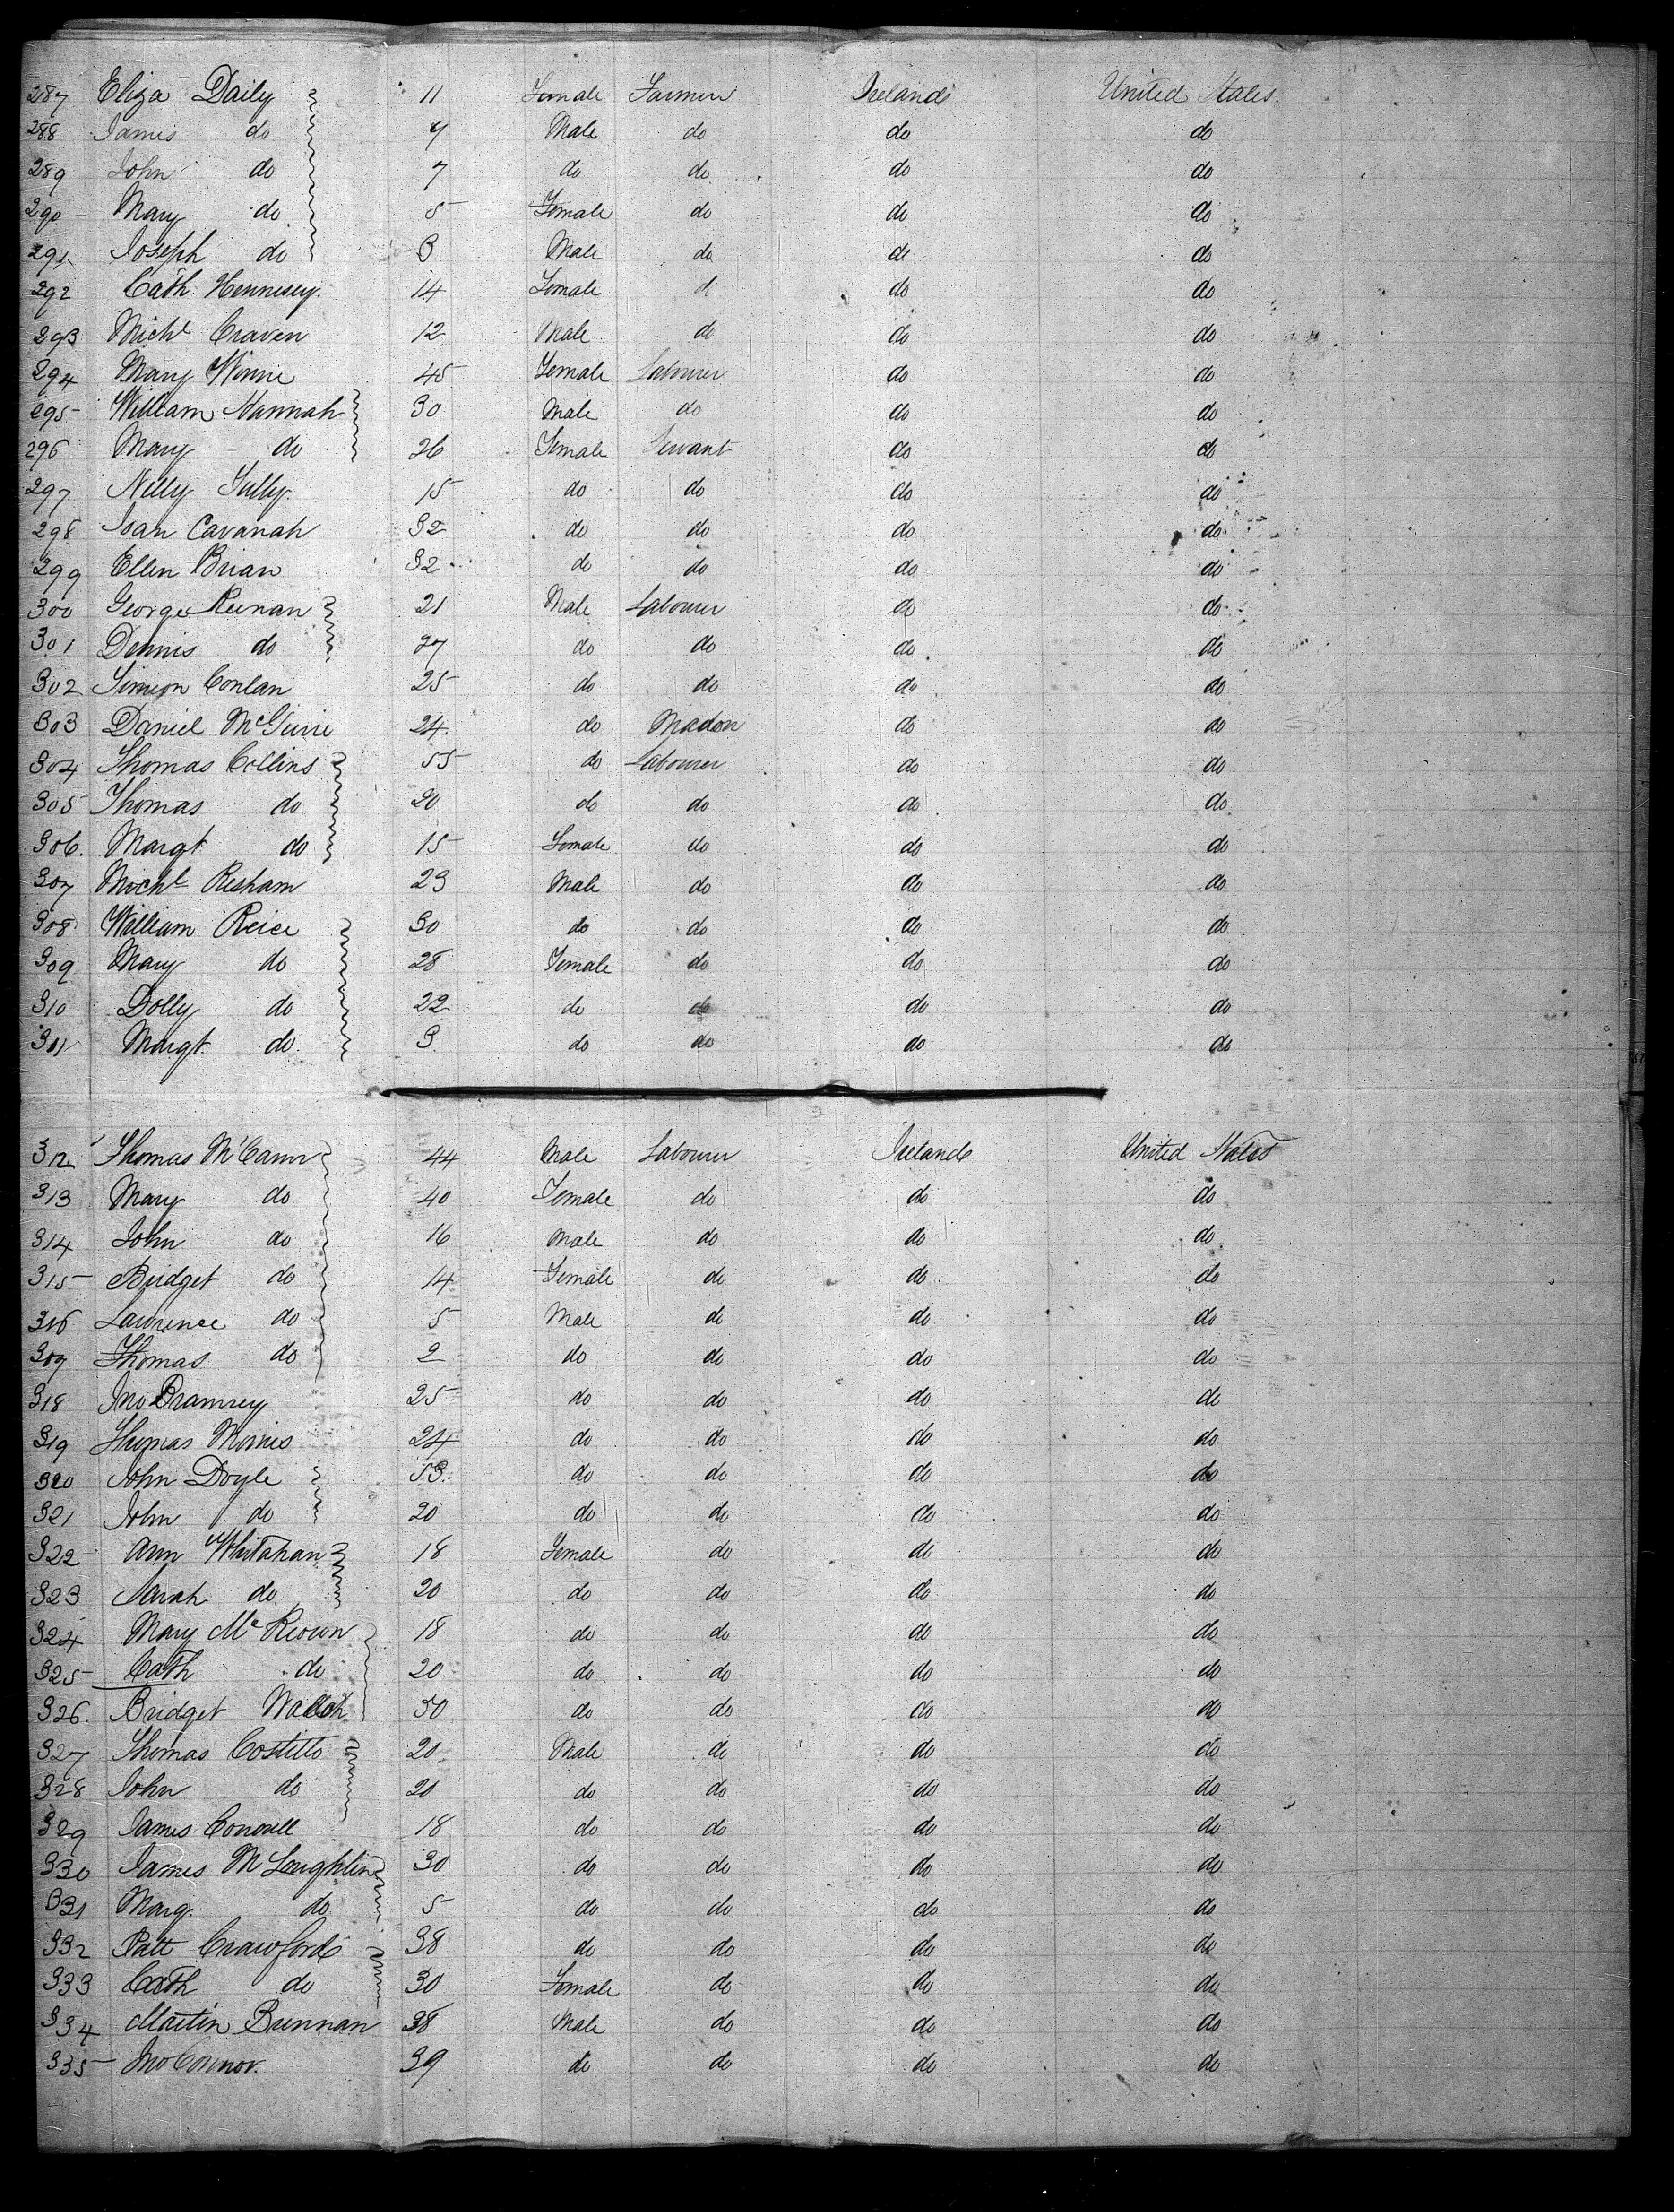 287 Eliza Daily 11 Female Farmer Ireland United States.
288 James do 9 Male do do do
289 John do 7 do do do do
290 Mary do 5 Female do do do
291 Joseph do 3 Male do do do
292 Cath Hennesey. 14 Female d do do
293 Michl Craven 12 Male do do do
294 Mary Winne 45 Female Labourer do do
295 William Hannah 30 Male do do do
296 Mary do 26 Female Servant do do
297 Nelly Tully 15 do do do do
298 Joan Cavanah 32 do do do do
299 Ellen Brian 32 do do do do
300 George Keenan 21 Male Labourer do do
301 Dennis do 27 do do do do
302 Simeon Conlan 25 do do do do
303 Daniel McGuire 24 do do do
304 Thomas Collins 55 do Labourer do do
305 Thomas do 20 do do do do
306. Margt do 15 Female do do do
307 Michl Resham 23 Male do do do
308 William Reice 30 do do do do
309 Mary do 28 Female do do do
310 Dolly do 22 do do do do
311 Margt do 3 do do do do
312 Thomas McCann 44 Male Labourer Ireland United States
313 Mary do 40 Female do do do
314 John do 16 Male do do do
315 Bridget do 14 Female do do do
316 Lawrence do 5 Male do do do
317 Thomas do 2 do do do do
318 Jno Bramney 25 do do do do
319 Thomas Morris 24 do do do do
320 John Doyle 53 do do do do
321 John do 20 do do do do
322 Ann Whitahan 18 Female do do do
323 Sarah do 20 do do do do
324 Mary McKeown 18 do do do do
325 Cath do 20 do do do do
326. Bridget Walsh 50 do do do do
327 Thomas Costillo 20 Male do do do
328 John do 20 do do do do
329 James Connell 18 do do do do
330 James McLaughlin 30 do do do do
331 Marg. do 5 do do do do
332 Patt Crawford 38 do do do do
333 Cath do 30 Female do do do
334 Martin Brennan 38 Male do do do
335 Jno Connor. 39 do do do do